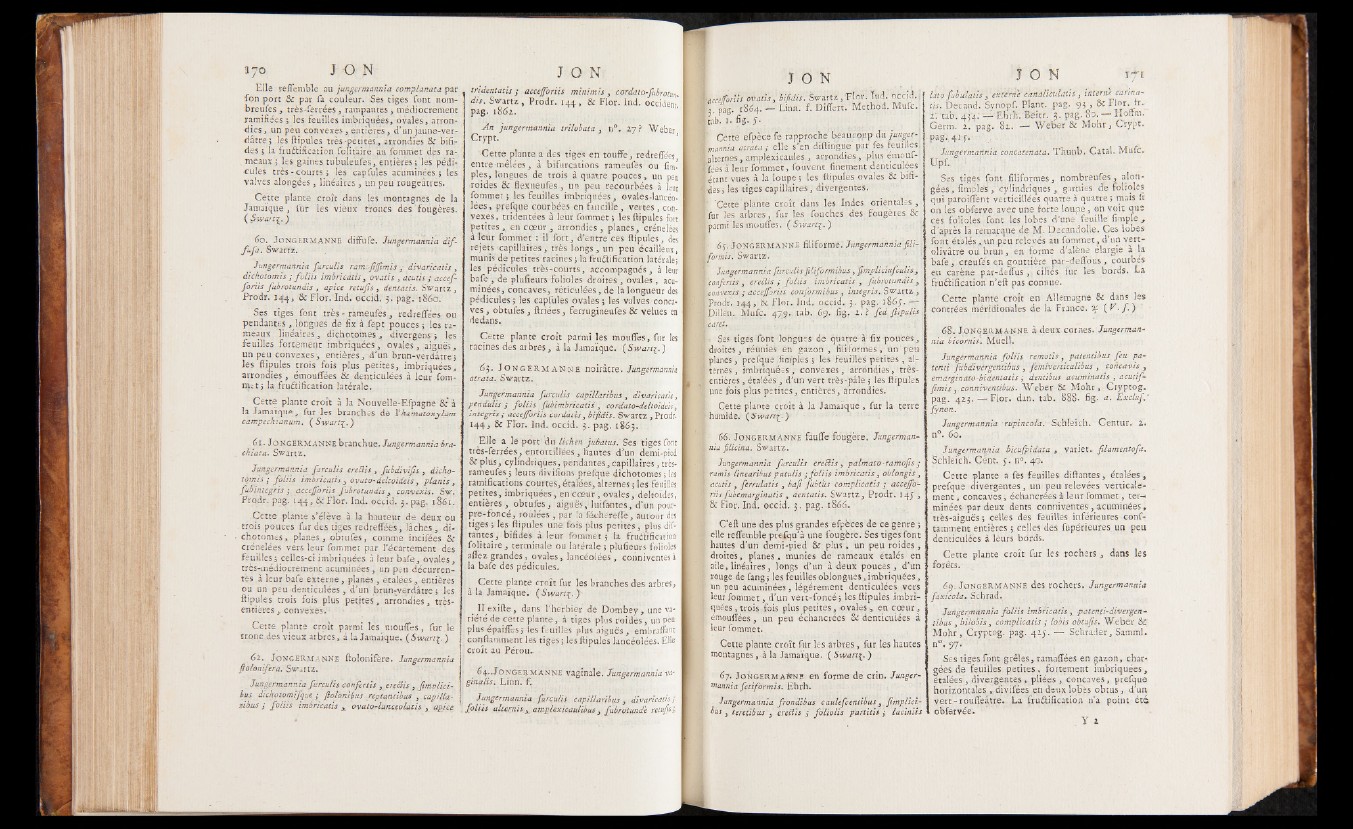 170 J O N
Elle ressemble au jungermannia complanata par
son port & par sa couleur. Ses tiges sont nom-
breuses, très-serrées, rampantes, médiocrement
ramifiées ; les feuilles imbriquées, ovales, arron-
dies, un peu convexes, entières, d'un jaune-ver-
dâtre ; les stipules très-petites, arrondies & bifi-
des ; la fructification solitaire au sommet des ra-
meaux ; les gaines tubuleuses, entières ; les pédi-
cules très-courts ; les capsules acuminées ; les
valves alongées, linéaires, un peu rougeâtres.
Cette plante croît dans les montagnes de la
Jamaïque, sur les vieux troncs des fougères.
( Swartz. )
60. JONGERMANNE diffuse. Jungermannia dif-
fusa. Swartz.
Jungermannia surculis ramosissimis, divaricatis,
dichotomis ; foliis imbricatis, ovatis, acutis ; acces-
soriis subrotundis, apice retusis, dentatis. Swartz,
Prodr. 144, & Flor. Ind. occid. 3. pag. 1860.
Ses tiges sont très-rameuses, redressées ou
pendantes, longues de six à sept pouces ; les ra-
meaux linéaires, dichotomes, divergens ; les
feuilles fortement imbriquées, ovales, aiguës,
un peu convexes, entières, d'un brun-verdâtre ;
les stipules trois fois plus petites, imbriquées,
arrondies, émoussées & denticulées à leur som-
met ; la fructification latérale.
Cette plante croît à la Nouvelle-Espagne & à
la Jamaïque, sur les branches de l'hæmatoxylum
campechianum. ( Swartz. )
61. JONGERMANNE branchue. Jungermannia bra-
chiata. Swartz.
Jungermannia surculis erectis, subdivisis, dicho-
tomis ; foliis imbricatis, ovato-deltoideis, planis,
subintegris ; accessoriis subrotundis, convexis. Sw.
Prodr. pag. 144, & Flor. Ind. occid. 3. pag. 1861.
Cette plante s'élève à la hauteur de deux ou
trois pouces sur des tiges redressées, lâches, di-
chotomes, planes, obtuses, comme incisées &
crénelées vers leur sommet par l'écartement des
feuilles ; celles-ci imbriquées à leur base, ovales,
très-médiocrement acuminées, un peu décurren-
tes à leur base externe, planes, étalées, entières
ou un peu denticulées, d'un brun-verdâtre ; les
stipules trois fois plus petites, arrondies, très-
entières, convexes.
Cette plante croît parmi les mousses, sur le
tronc des vieux arbres, à la Jamaïque. ( Swartz. )
62. JONGERMANNE stolonifère. Jungermannia
stolonifera. Swartz.
Jungermannia surculis confertis, erectis, simplici-
bus dichotomisque ; stolonibus reptantibus, capilla-
ribus ; foliis imbricatis, ovato-lanceolatis, apice
J O N
tridentatis ; accessoriis minimis, cordato-subrotun-
dis. Swartz, Prodr. 144, & Flor. Ind. occident.
pag. 1862.
An jungermannia trilobata, n°. 27 ? Weber,
Crypt.
Cette plante a des tiges en touffe, redressées,
entre-mêlées, à bifurcations rameuses ou sim-
ples, longues de trois à quatre pouces, un peu
roides & flexueuses, un peu recourbées à leur
sommet ; les feuilles imbriquées, ovales-lancéo-
lées, presque courbées en faucille, vertes, con-
vexes, tridentées à leur sommet ; les stipules fort
petites, en cœur, arrondies, planes, crénelées
à leur sommet : il sort, d'entre ces stipules, des
rejets capillaires, très longs, un peu écailleux,
munis de petites racines ; la fructification latérale ;
les pédicules très-courts, accompagnés, à leur
base, de plusieurs folioles droites, ovales, acu-
minées, concaves, réticulées, de la longueur des
pédicules ; les capsules ovales ; les valves conca-
ves, obtuses, striées, ferrugineuses & velues en
dedans.
Cette plante croît parmi les mousses, sur les
racines des arbres, à la Jamaïque. ( Swartz. )
63. JONGERMANNE noirâtre. Jungermannia
atrata. Swartz.
Jungermannia surculis capillaribus, divaricatis,
pendulis ; foliis subimbricatis, cordato-deltoideis,
integris ; accessoriis cordatis, bifidis. Swartz, Prodr.
144, & Flor. Ind. occid. 3. pag. 1863.
Elle a le port du lichen jubatus. Ses tiges sont
très-serrées, entortillées, hautes d'un demi-pied
& plus, cylindriques, pendantes, capillaires, très-
rameuses ; leurs divisions presque dichotomes ; les
ramifications courtes, étalées, alternes ; les feuilles
petites, imbriquées, en cœur, ovales, deltoïdes,
entières, obtuses, aiguës, luisantes, d'un pour-
pre-foncé, roulées, par la sécheresse, autour des
tiges ; les stipules une fois plus petites, plus dis-
tantes, bifides à leur sommet ; la fructification
solitaire, terminale ou latérale ; plusieurs folioles
assez grandes, ovales, lancéolées, conniventes à
la base des pédicules.
Cette plante croît sur les branches des arbres,
à la Jamaïque. ( Swartz. )
Il existe, dans l'herbier de Dombey, une va-
riété de cette plante, à tiges plus roides, un peu
plus épaisses ; les feuilles plus aiguës, embrassant
constamment les tiges ; les stipules lancéolées. Elle
croît au Pérou.
64. JONGERMANNE vaginale. Jungermannia va-
ginalis. Linn. f.
Jungermannia surculis capillaribus, divaricatis ;
foliis alternis, amplexicaulibus, subrotunde retusis ;
J O N
accessoriis ovatis, bifidis. Swartz, Flor. Ind. occid.
3. pag. 1864. — Linn. f. Dissert. Method. Musc.
tab. 1. fig. 5.
Cette espèce se rapproche beaucoup du junger-
mannia atrata ; elle s'en distingue par ses feuilles
alternes, amplexicaules, arrondies, plus émous-
sées à leur sommet, souvent finement denticulées
étant vues à la loupe ; les stipules ovales & bifi-
des ; les tiges capillaires, divergentes.
Cette plante croît dans les Indes orientales,
sur les arbres, sur les souches des fougères &
parmi les mousses. ( Swartz. )
65. JONGERMANNE filiforme. Jungermannia fili-
formis. Swartz.
Jungermannia surculis filiformibus, simpliciusculis,
confertis, erectis ; foliis imbricatis, subrotundis,
convexis ; accessoriis conformibus, integris. Swartz,
Prodr. 144, & Flor. Ind. occid. 3. pag. 1865. —
Dillen. Musc. 479. tab. 69. fig. 2. ? sed stipulis
caret.
Ses tiges sont longues de quatre à six pouces,
droites, réunies en gazon, filiformes, un peu
planes, presque simples ; les feuilles petites, al-
ternes, imbriquées, convexes, arrondies, très-
entières, étalées, d'un vert très-pâle ; les stipules
une fois plus petites, entières, arrondies.
Cette plante croît à la Jamaïque, sur la terre
humide. ( Swartz. )
66. JONGERMANNE fausse fougère. Jungerman-
nia filicina. Swartz.
Jungermannia surculis erectis, palmato-ramosis ;
ramis linearibus patulis ; foliis imbricatis, oblongis,
acutis, serrulatis, basi subtus complicatis ; accesso-
riis subemarginatis, dentatis. Swartz, Prodr. 145,
& Flor. Ind. occid. 3. pag. 1866.
C'est une des plus grandes espèces de ce genre ;
elle ressemble presqu'à une fougère. Ses tiges sont
hautes d'un demi-pied & plus, un peu roides,
droites, planes, munies de rameaux étalés en
aile, linéaires, longs d'un à deux pouces, d'un
rouge de sang ; les feuilles oblongues, imbriquées,
un peu acuminées, légérement denticulées vers
leur sommet, d'un vert-foncé ; les stipules imbri-
quées, trois fois plus petites, ovales, en cœur,
émoussées, un peu échancrées & denticulées à
leur sommet.
Cette plante croît sur les arbres, sur les hautes
montagnes, à la Jamaïque. ( Swartz. )
67. JONGERMANNE en forme de crin. Junger-
mannia setiformis. Ehrh.
Jungermannia frondibus caulescentibus, simplici-
bus, teretibus, erectis ; foliolis partitis ; laciniis
J O N 171
lato subulatis, externè canaliculatis, internè carina-
tis. Decand. Synops. Plant. pag. 93, & Flor. fr.
2. tab. 434. — Ehrh. Beitr. 3. pag. 80. — Hoffm.
Germ. 2. pag. 82. — Weber & Mohr, Crypt.
pag. 415.
Jungermannia concatenata. Thunb. Catal. Musc.
Upf.
Ses tiges sont filiformes, nombreuses, alon-
gées, simples, cylindriques, garnies de folioles
qui paroissent verticillées quatre à quatre ; mais si
on les observe avec une forte loupe, on voit que
ces folioles sont les lobes d'une feuille simple,
d'après la remarque de M. Decandolle. Ces lobes
sont étalés, un peu relevés au sommet, d'un vert-
olivâtre ou brun, en forme d'alène élargie à la
base, creusés en gouttière par-dessous, courbés
en carène par-dessus, ciliés sur les bords. La
fructification n'est pas connue.
Cette plante croît en Allemagne & dans les
contrées méridionales de la France. ♃ ( V. s. )
68. JONGERMANNE à deux cornes. Jungerman-
nia bicornis. Muell.
Jungermannia foliis remotis, patentibus seu pa-
tenti subdivergentibus, semiverticalibus, concavis,
emarginato-bidentatis, dentibus acuminatis, acutis-
simis, conniventibus. Weber & Mohr, Cryptog.
pag. 423. — Flor. dan. tab. 888. fig. a. Exclus.
synon.
Jungermannia rupincola. Schleich. Centur. 2.
n°. 60.
Jungermannia bicuspidata, variet. filamentosa.
Schleich. Cent. 5. n°. 40.
Cette plante a ses feuilles distantes, étalées,
presque divergentes, un peu relevées verticale-
ment, concaves, échancrées à leur sommet, ter-
minées par deux dents conniventes, acuminées,
très-aiguës ; celles des feuilles inférieures cons-
tamment entières ; celles des supérieures un peu
denticulées à leurs bords.
Cette plante croît sur les rochers, dans les
forêts.
69. JONGERMANNE des rochers. Jungermannia
saxicola. Schrad.
Jungermannia foliis imbricatis, patenti-divergen-
tibus, bilobis, complicatis ; lobis obtusis. Weber &
Mohr, Cryptog. pag. 425. — Schrader, Samml.
n°. 97.
Ses tiges sont grêles, ramassées en gazon, char-
gées de feuilles petites, fortement imbriquées,
étalées, divergentes, pliées, concaves, presque
horizontales, divisées en deux lobes obtus, d'un
vert-roussâtre. La fructification n'a point été
observée.
Y 2